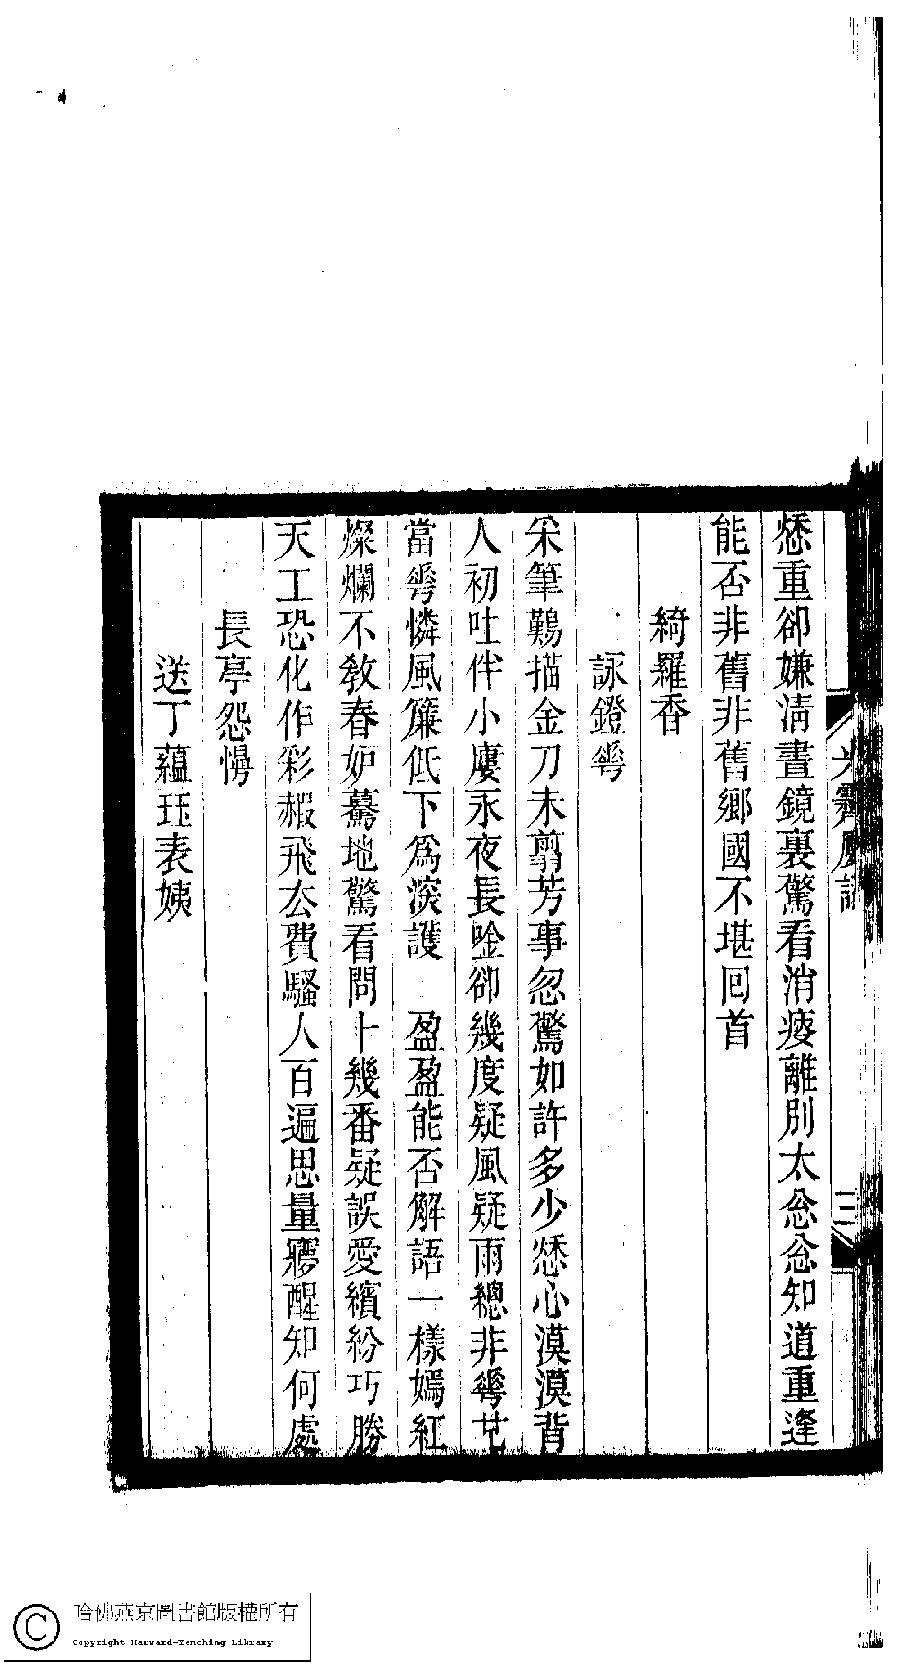 愁重卻嫌淸晝鏡裏驚看消瘦離別太忩忩知道重逢
能否非舊非舊鄉國不堪回首
綺羅香
詠鐙蕐
采筆鷬描金刀未翦芳事忽驚如許多少愁心漠漠背
人初吐伴小廔永夜長唫卻幾度疑風疑雨總非蕐芚
當蕐憐風簾低下爲深護　盈盈能否解語一樣嫣紅
燦爛不敎春妒驀地驚看問十幾番疑誤愛繽紛巧勝
天工恐化作彩赮飛厺費騷人百遍思量寱醒知何處
長亭怨慢
送丁蘊珏表姨
三
哈佛燕京圖書館版權所有
Copyright Harvard-Yenching Library